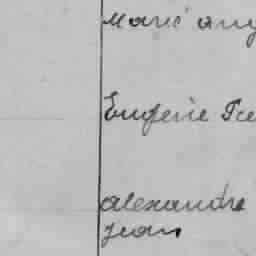 Marie ang
Eugenie
alexandre
Jean